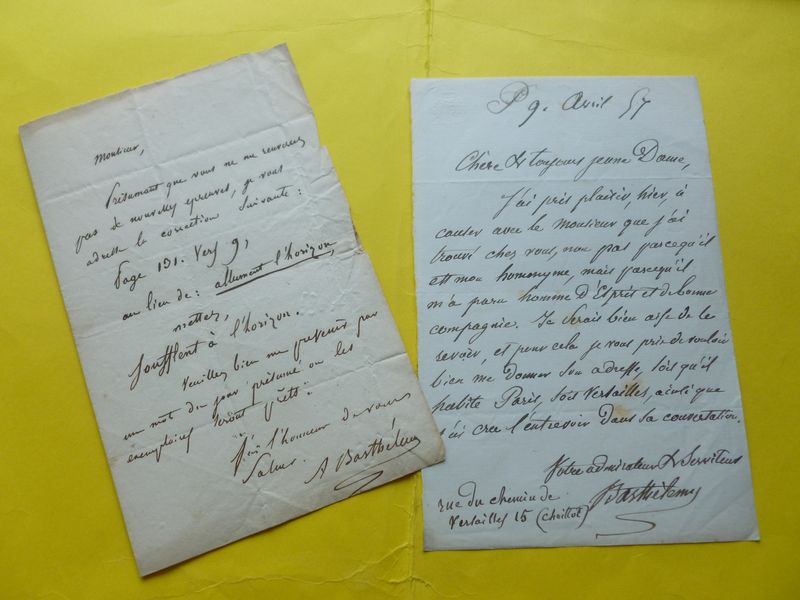 Monsieur,
Présumant que vous ne me renverrez
pas de nouvelles épreuves, je vous
adresse la correction suivante :
Page 131. Vers 9,
au lieu de : allument l'horizon,
mettez,
soufflent à l'horizon.
Veuillez bien me prévenir par
un mot du jour présumé où les
exemplaires seront prêts.
J'ai l'honneur de vous
saluer.
A Barthélemy
P 9. Avril 57
Chère & toujours jeune Dame,
J'ai pris plaisir, hier, à
causer avec le monsieur que j'ai
trouvé chez vous, non pas parcequ'il
est mon homonyme, mais parcequ'il
m'a paru homme d'Esprit et de bonne
compagnie. Je serais bien aise de le
revoir, et pour cela je vous prie de vouloir
bien me donner son adresse, soit qu'il
habite Paris, soit Versailles, ainsi que
j'ai cru l'entrevoir dans sa conversation.
Votre admirateur & Serviteur
Barthélemy
rue du chemin de
Versailles 15 (Chaillot)